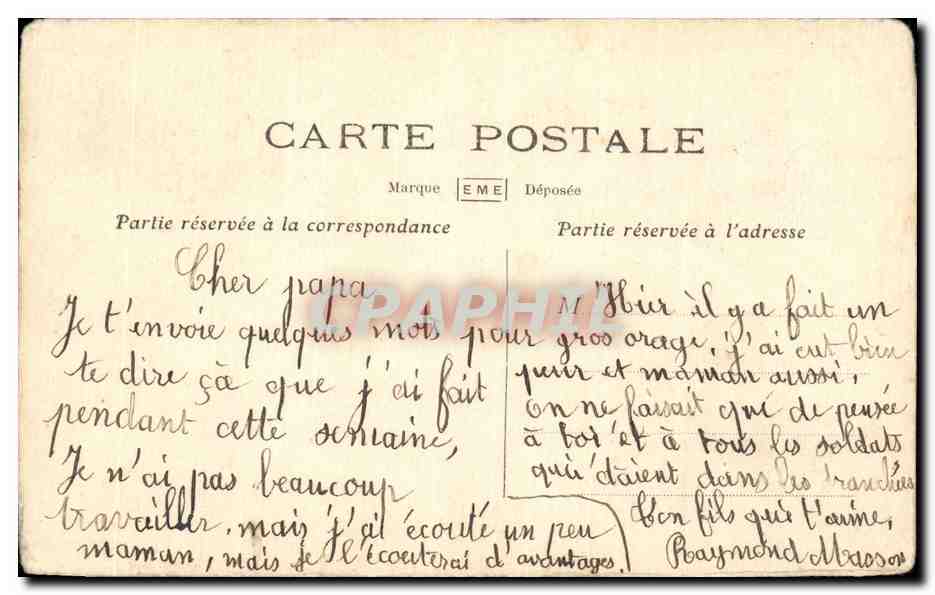 CARTE POSTALE
Marque EME Déposée
Partie réservée à la correspondance
Cher papa
Je t'envoie quelques mots pour
te dire çà que j'ai fait
pendant cette semaine,
Je n'ai pas beaucoup
travailler, mais j'ai écouté un peu
maman, mais je l'écouterai d'avantages.
Partie réservée à l'adresse
M Hier il y a fait un
gros orage, j'ai eut bien
peur et maman aussi,
On ne faisait que de pensée
à toi et à tous les soldats
qui étaient dans les tranchées
Ton fils qui t'aime,
Raymond Masson
CPAPHIL